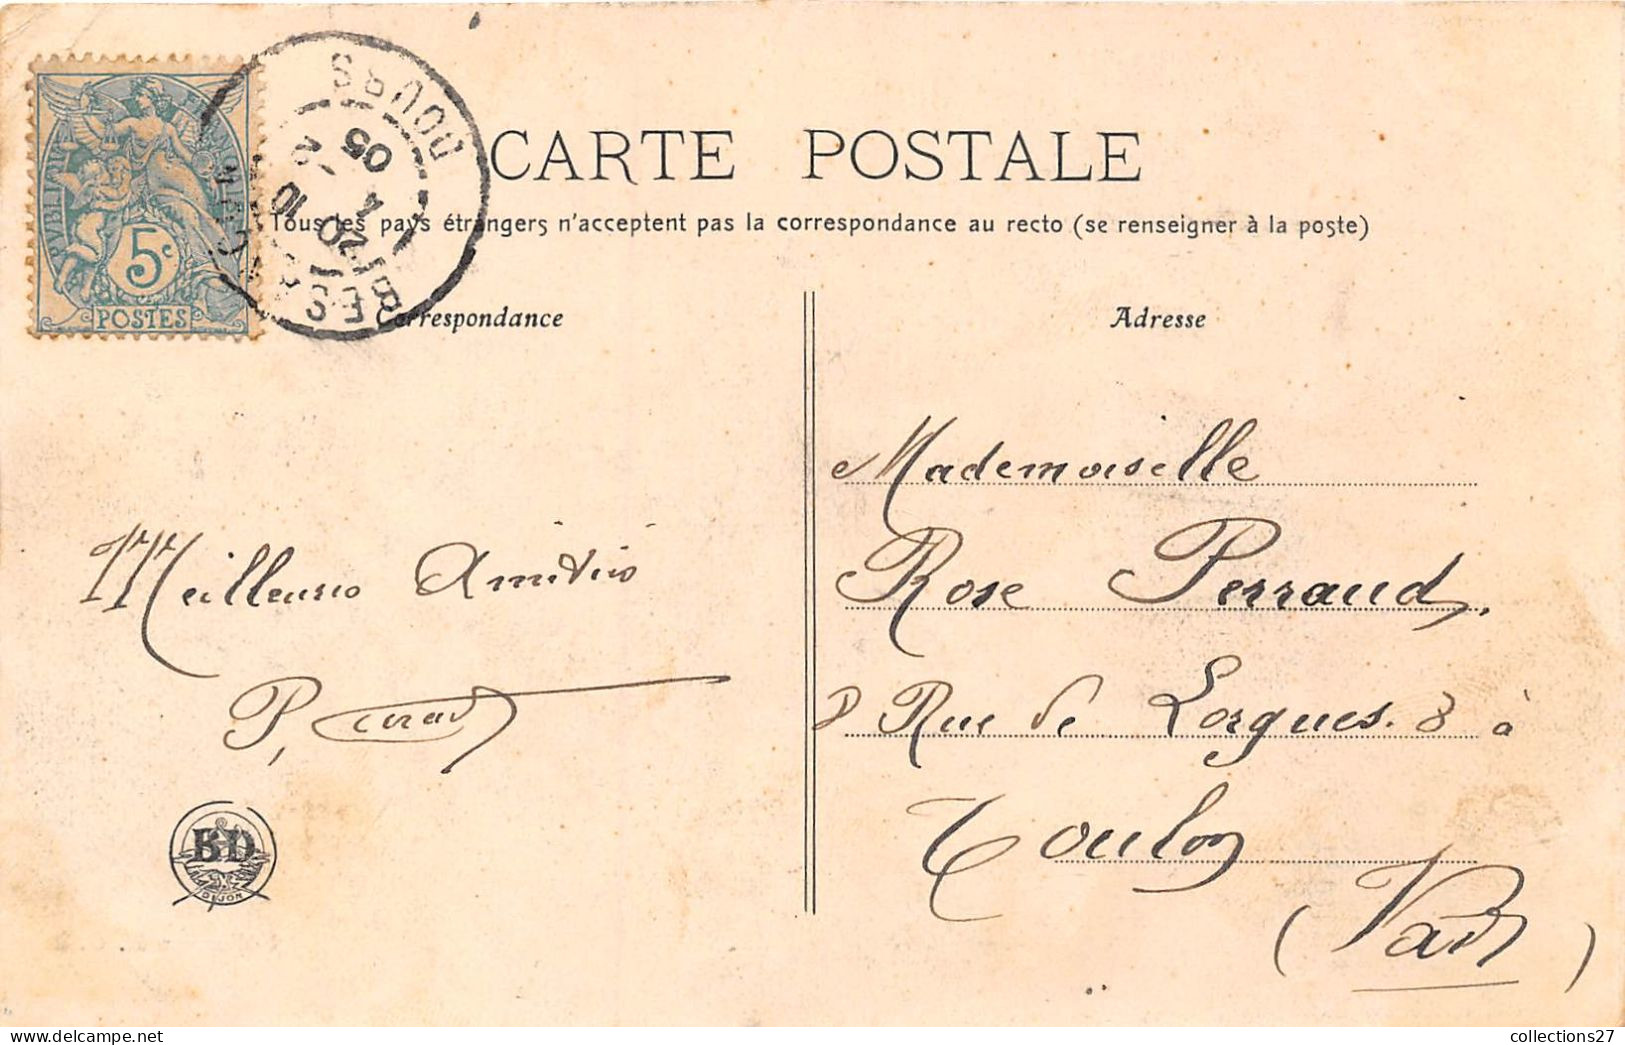 CARTE POSTALE
Tous les pays étrangers n'acceptent pas la correspondance au recto (se renseigner à la poste)
5c
POSTES
DOUBS
10
20
4
05
Correspondance
Adresse
Meilleures Amitiés
P.
Mademoiselle
Rose Perraud,
8 Rue de Lorgues. 8 à
Toulon
(Var)
BD
DIJON
collections27